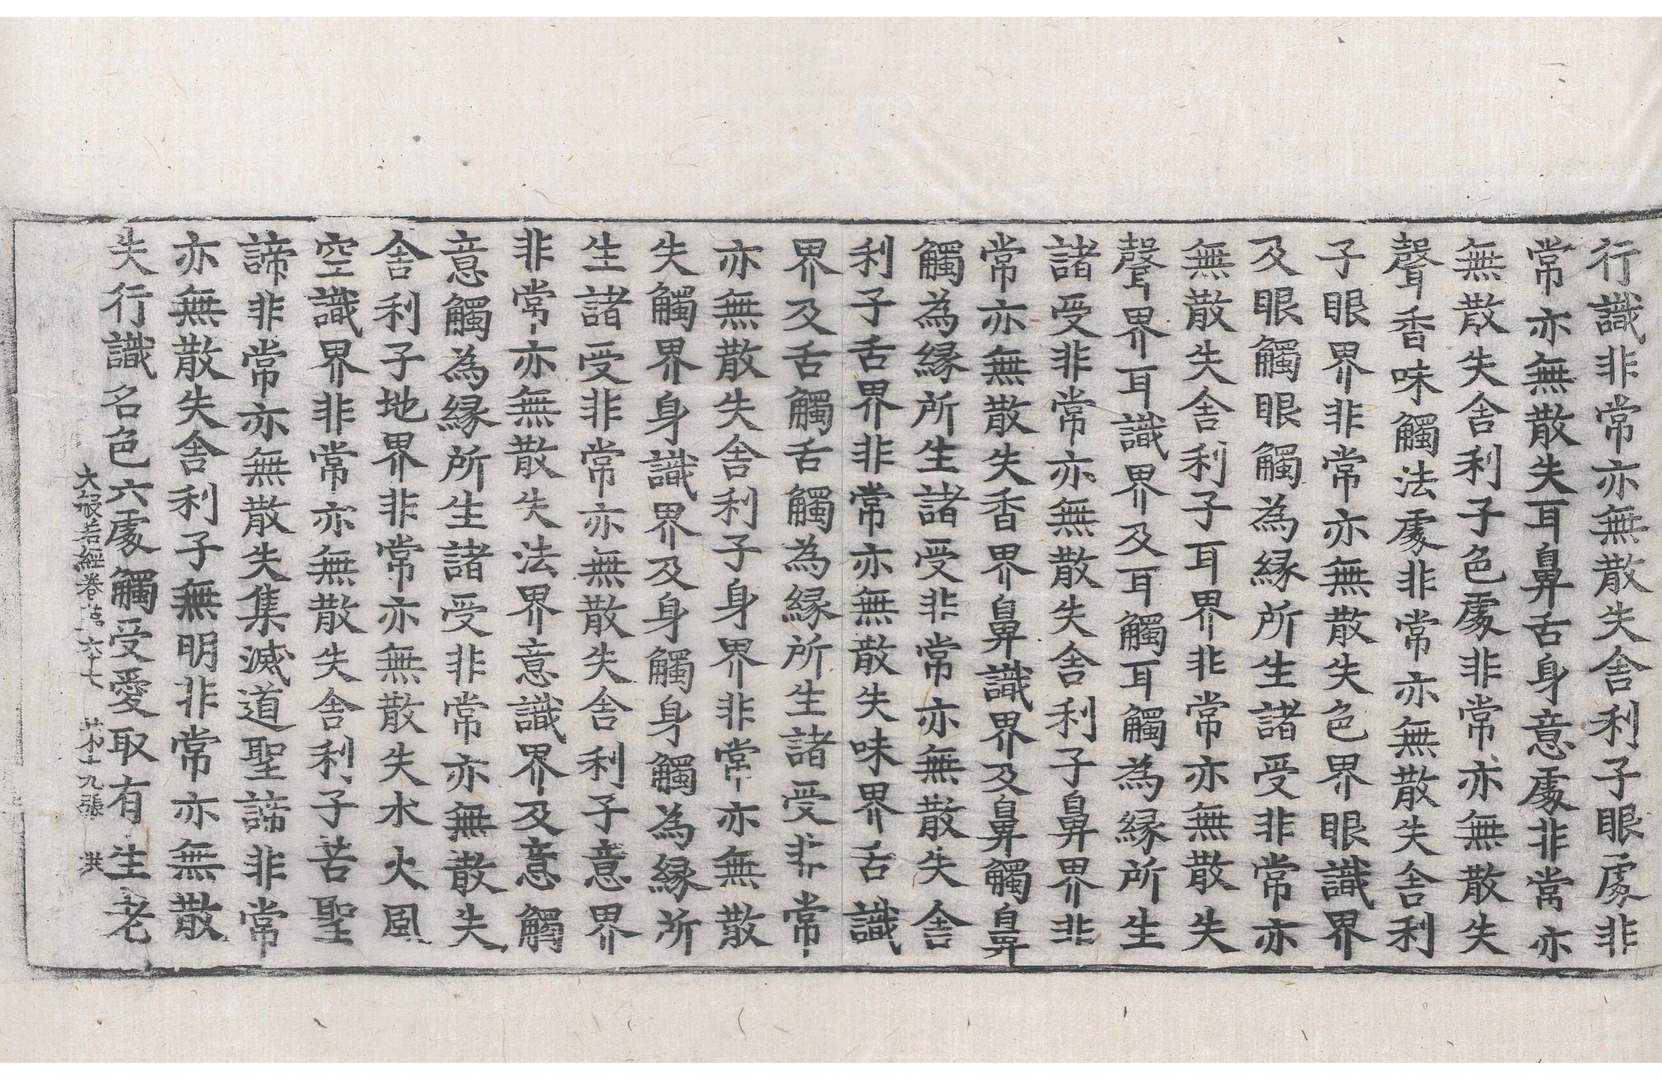 行識非常亦無散失舍利子眼處非
常亦無散失耳鼻舌身意處非常亦
無散失舍利子色處非常亦無散失
聲香味觸法處非常亦無散失舍利
子眼界非常亦無散失色界眼識界
及眼觸眼觸為緣所生諸受非常亦
無散失舍利子耳界非常亦無散失
聲界耳識界及耳觸耳觸為緣所生
諸受非常亦無散失舍利子鼻界非
常亦無散失香界鼻識界及鼻觸鼻
觸為緣所生諸受非常亦無散失舍
利子舌界非常亦無散失味界舌識
界及舌觸舌觸為緣所生諸受非常
亦無散失舍利子身界非常亦無散
失觸界身識界及身觸身觸為緣所
生諸受非常亦無散失舍利子意界
非常亦無散失法界意識界及意觸
意觸為緣所生諸受非常亦無散失
舍利子地界非常亦無散失水火風
空識界非常亦無散失舍利子苦聖
諦非常亦無散失集滅道聖諦非常
亦無散失舍利子無明非常亦無散
失行識名色六處觸受愛取有生老
大般若經卷第六七 第十九張 洪